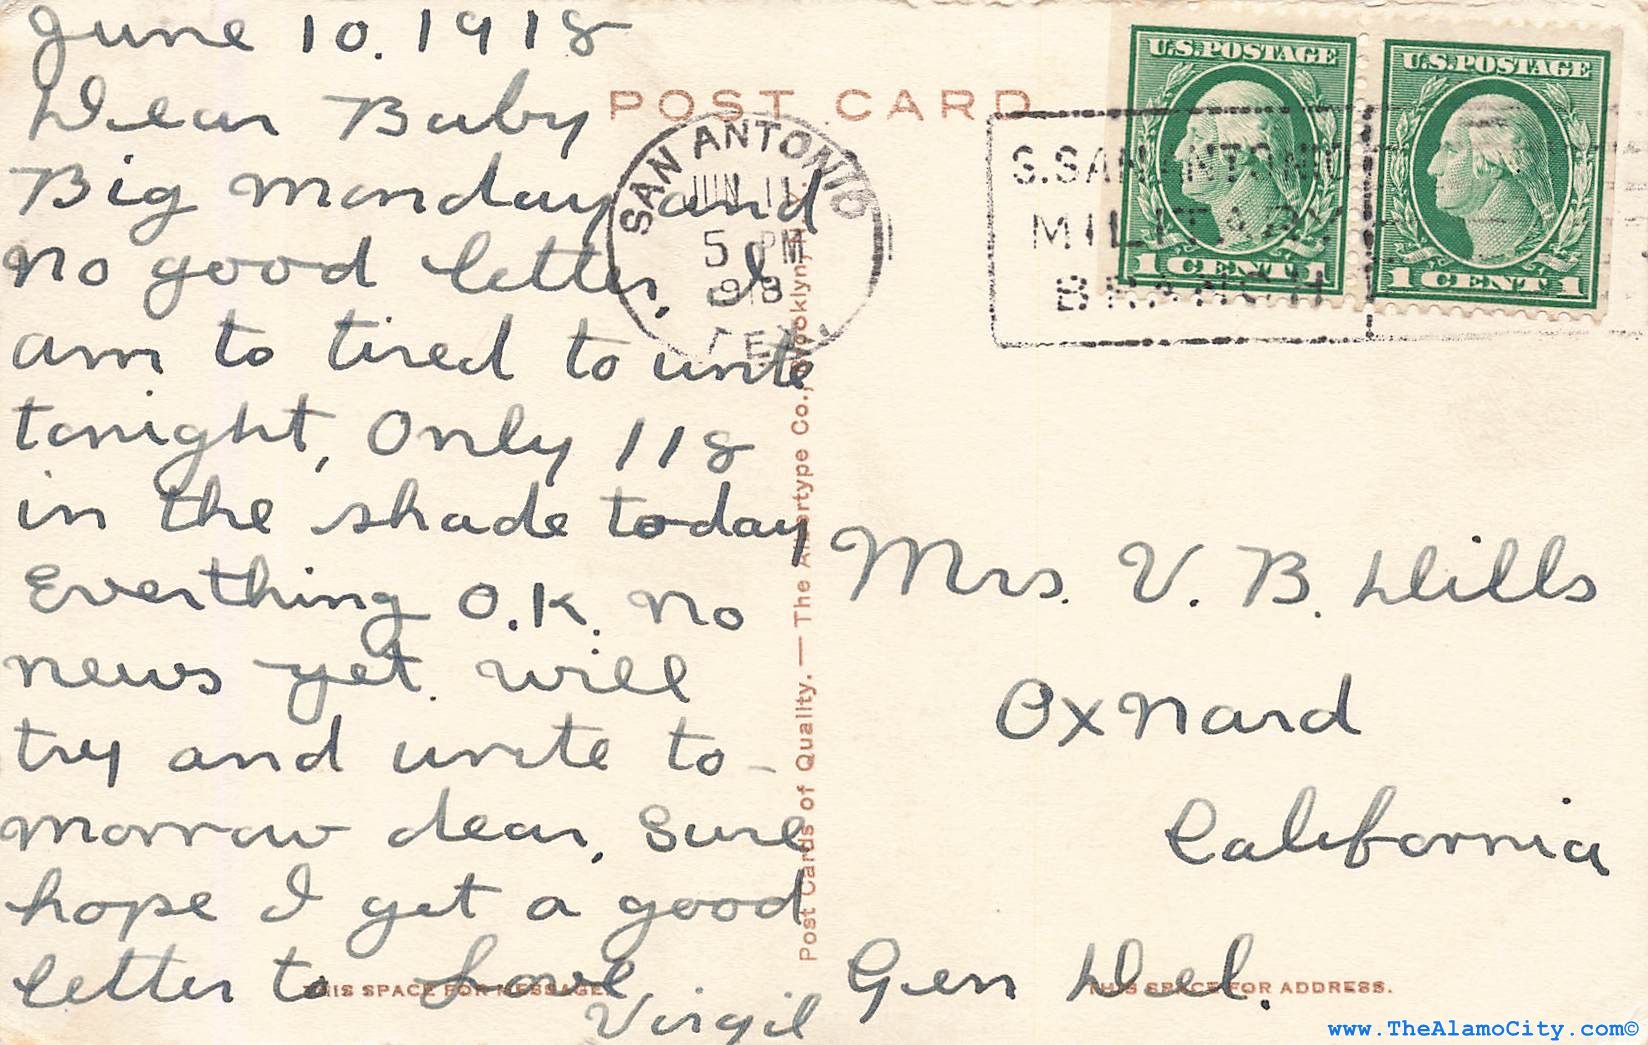 June 10. 1918
Dear Baby
Big Monday and
No good letter. I
am to tired to write
tonight, Only 118
in the shade today
Everthing O.K. No
news yet. will
try and write to-
morrow dear. Sure
hope I get a good
letter to Love
Virgil
POST CARD
SAN ANTONIO
JUN 11
5 PM
1918
TEX.
S. SAN ANTONIO
MILITARY
BRANCH
U.S.POSTAGE
1 CENT 1
U.S.POSTAGE
1 CENT 1
Post Cards of Quality. — The Albertype Co., Brooklyn,
Mrs. V. B. Dills
Oxnard
California
Gen Del.
THIS SPACE FOR MESSAGE.
THIS SPACE FOR ADDRESS.
www.TheAlamoCity.com©